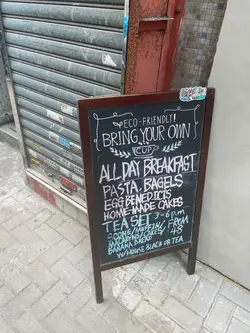 ECO-FRIENDLY!
BRING YOUR OWN
CUP
ALL DAY BREAKFAST
PASTA, BAGELS
EGG BENEDICTS
HOME-MADE CAKES
TEA SET 3-6 p.m
SCONE/MUFFIN/ FROM
CAKES/ 48
BANANA BREAD
W/HOUSE BLACK OR TEA